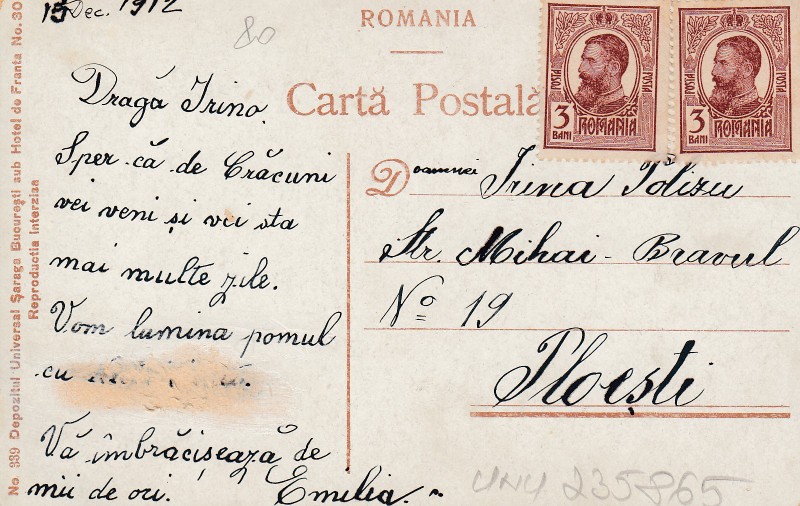 15 Dec. 1912
80
Dragă Irino,
Sper că de Crăciuni
vei veni și vei sta
mai multe zile.
Vom lumina pomul
cu
Vă îmbrăcișează de
mii de ori. Emilia.
ROMANIA
Cartă Postală
POSTA POSTA
3 BANI ROMANIA
POSTA POSTA
3 BANI ROMANIA
Doamnei Irina Polizu
Str. Mihai-Bravul
No 19
Ploești
235865
No. 339 Depozitul Universal Șaraga București sub Hotel de Franta No. 30
Reproductia interzisa